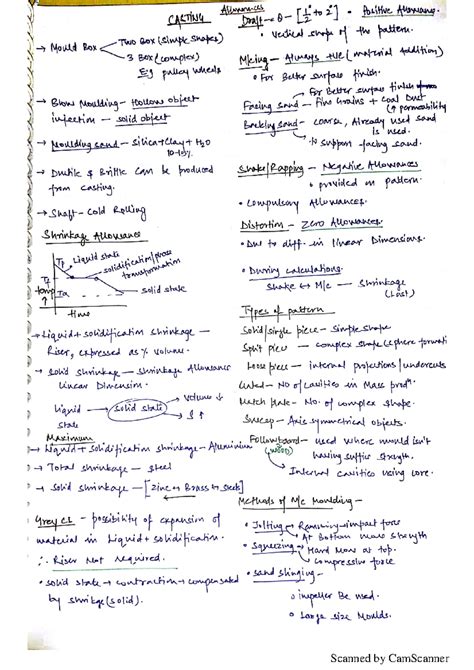 CASTING
→ Mould Box → Two Box (Simple Shapes)
→ 3 Box (complex)
Eg pulley wheels
→ Blow Moulding - Hollow object
injection - solid object
→ Moulding sand - Silica + Clay + H₂O
10-15%
→ Ductile & Brittle can be produced
from casting.
→ Shaft - Cold Rolling
Shrinkage Allowance
Liquid state
solidification/phase
transformation
solid state
temp
time
→ Liquid + solidification shrinkage -
Riser, expressed as % volume.
• Solid shrinkage - Shrinkage Allowance
Linear Dimension.
Liquid → Solid state → Volume ↓
→ ρ ↑
Maximum
→ Liquid + Solidification shrinkage - Aluminium
→ Total shrinkage - steel
→ Solid shrinkage - [Zinc → Brass → Steel]
Grey CI - possibility of expansion of
material in Liquid + solidification.
∴ Riser Not required.
• solid state → contraction → compensated
by shrinkage (solid).
Allowances
Draft → θ - [½° to 2°] • Positive Allowance.
• Vertical shape of the pattern.
M/cing - Always +ve (material Addition)
• For Better surface finish.
• For Better surface finish
Facing sand - Fine Grains + Coal Dust
(↑ permeability)
Backing sand - coarse, Already used sand
is used.
• To support facing sand.
Shake/Rapping - Negative Allowances
• provided on pattern.
• Compulsory Allowances.
Distortion - Zero Allowance
• Due to diff. in linear Dimensions.
• During calculations.
Shake ↔ M/c — Shrinkage
(Last)
Types of pattern
Solid/single piece - Simple shape
Split piece - complex shape (sphere formation
Loose piece - internal projections/undercuts
Gated - No of cavities in Mass prodⁿ
Match plate - No. of complex shape.
Sweep - Axis symmetrical objects.
Followboard - used where mould isn't
(wood) having suffice strength.
Internal cavities using core.
Methods of M/c Moulding -
• Jolting → Ramming-impact force
→ At Bottom more strength
• Squeezing → Hard More at top.
→ Compressive force
• Sand slinging -
• impeller Be used.
• Large size Moulds.
Scanned by CamScanner